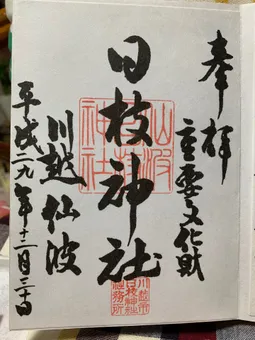 奉拝
重要文化財
日枝神社
川越仙波
平成二九年十二月三十日
山波
日枝
神社
川越市
日枝神社
社務所